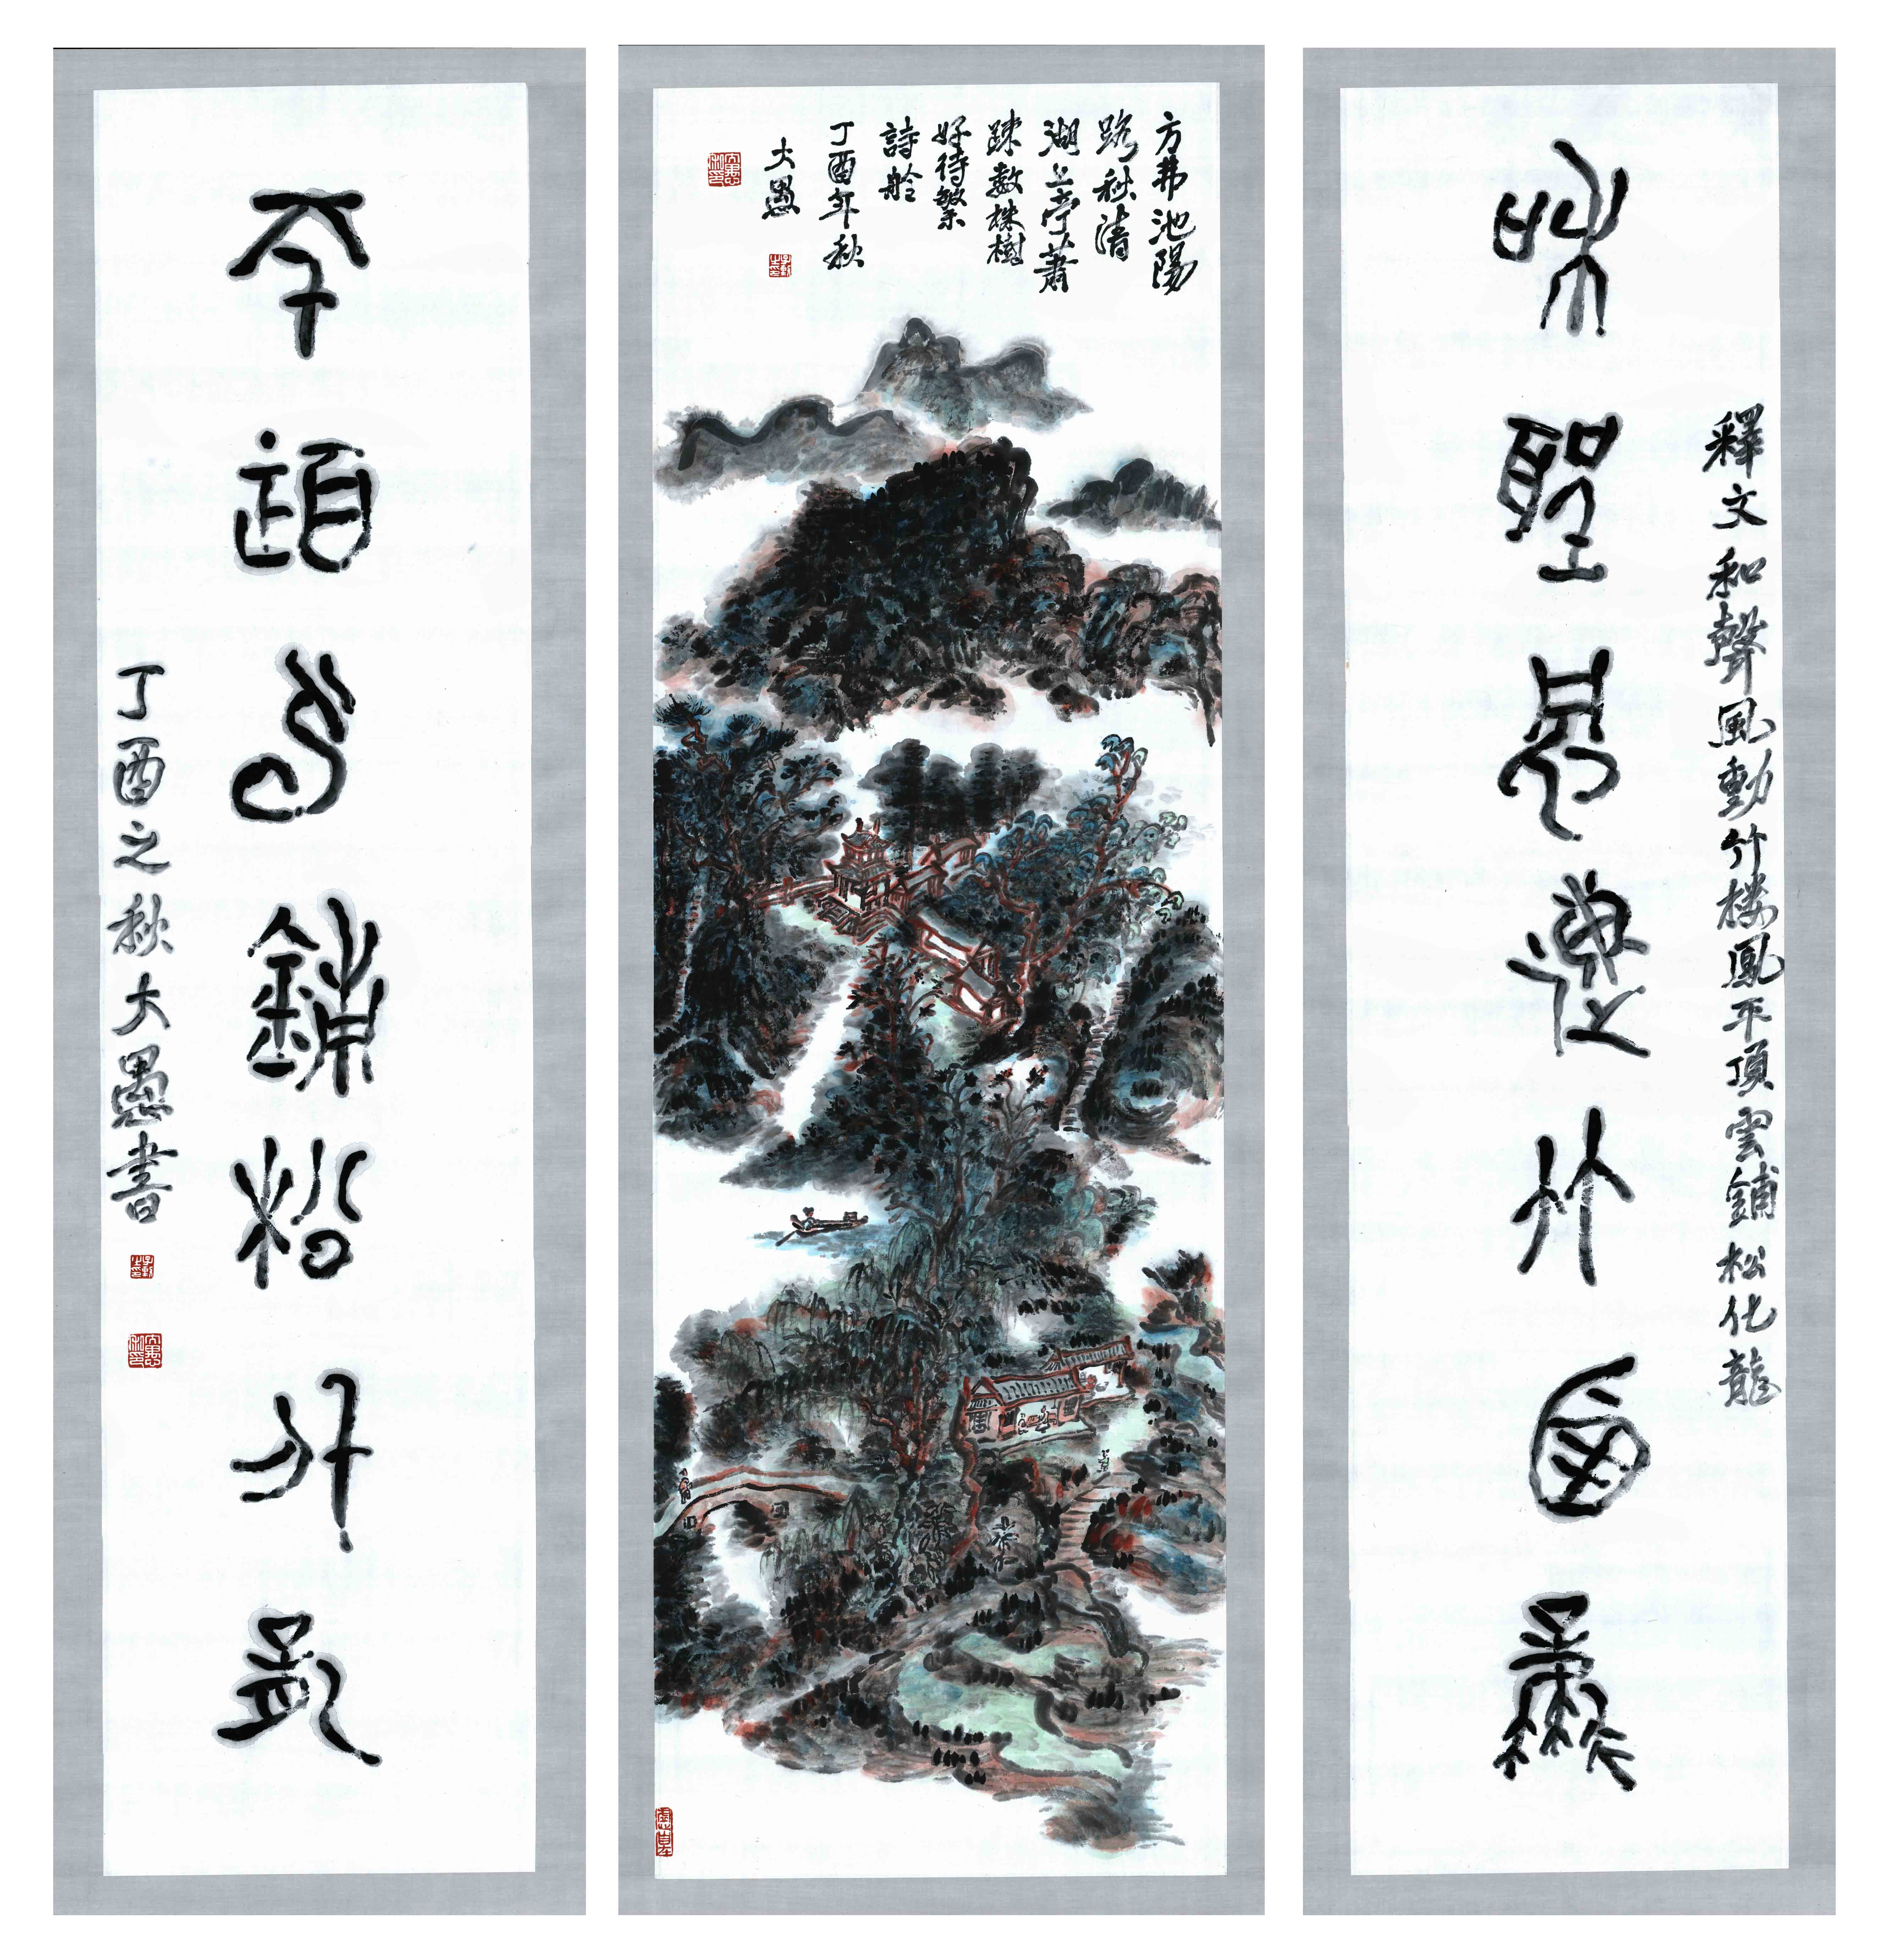 釋文和聲風動竹棲鳳平頂雲鋪松化龍
和聲風動竹棲鳳
方弗池陽
路秋清
湖上亭蕭
踈數株樹
好待繫
詩舲
丁酉年秋
大愚
平頂雲鋪松化龍
丁酉之秋大愚書